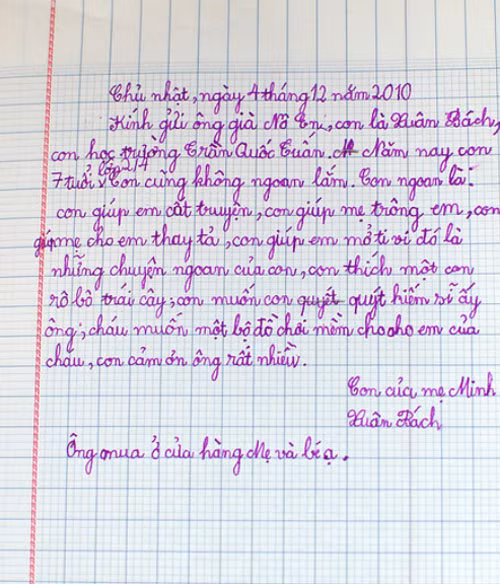 Chủ nhật, ngày 4 tháng 12 năm 2010
Kính gửi ông già Nô En, con là Xuân Bách,
con học trường Trần Quốc Tuấn. Năm nay con
lớp 2/7
7 tuổi, Con cũng không ngoan lắm. Con ngoan là:
con giúp em cất truyện, con giúp mẹ trông em, con
giúp mẹ cho em thay tả, con giúp em mở ti vi đó là
những chuyện ngoan của con, con thích một con
rô bô trái cây, con muốn con quyết quýt hiếm sĩ ấy
ông; cháu muốn một bộ đồ chơi mềm cho cho em của
cháu, con cảm ơn ông rất nhiều.
Con của mẹ Minh
Xuân Bách
Ông mua ở cửa hàng Mẹ và bé ạ.